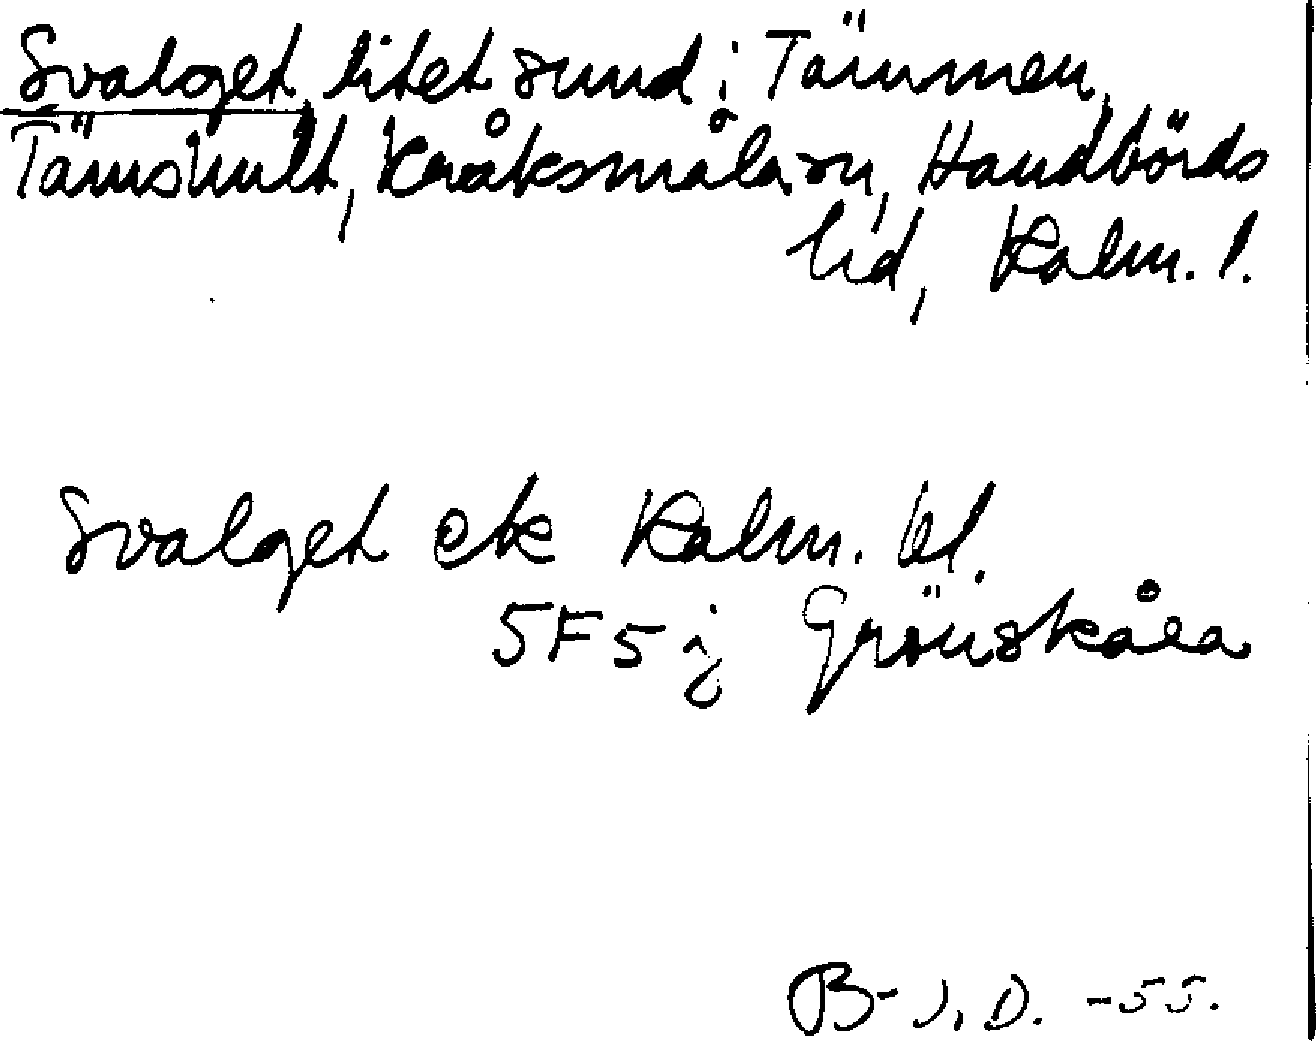 Svalget, litet sund i Tämmen,
Tämshult, Kråksmåla sn, Handbörds
hd, Kalm. l.
Svalget ek Kalm. bl.
5F5j Grönskåra
B-J. D. -55.